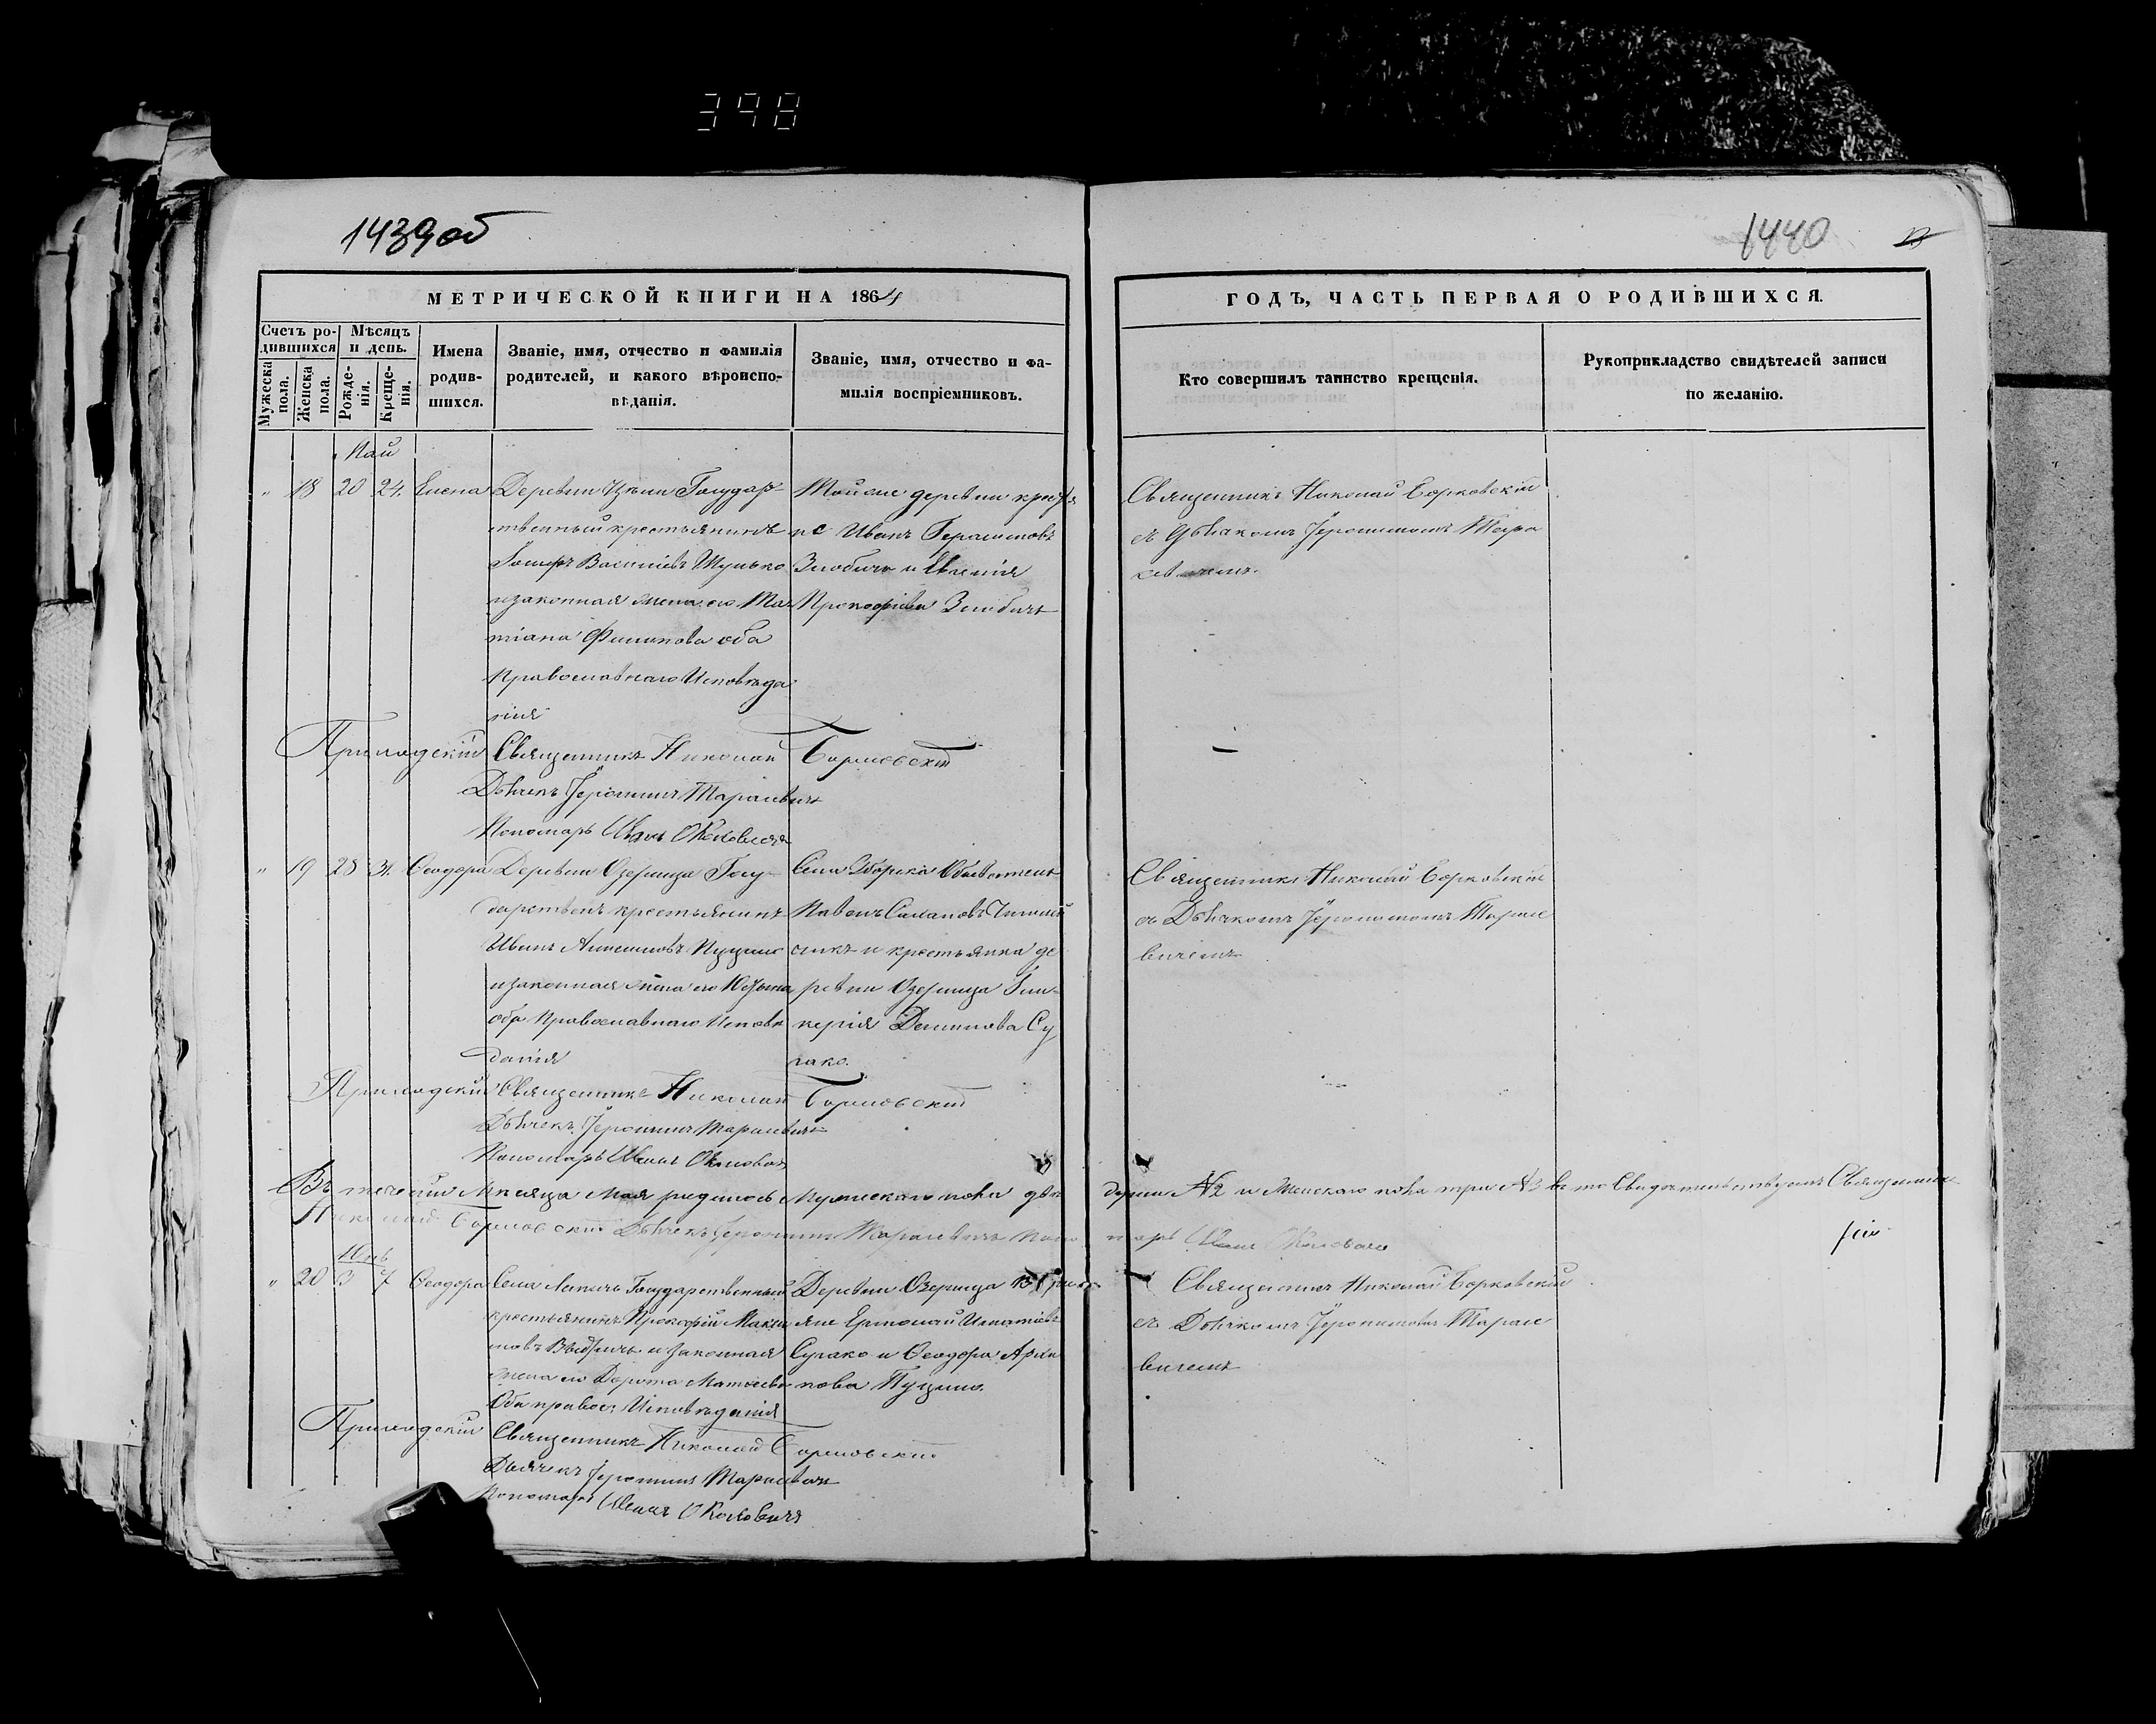 398
1439 об
1440
13
МЕТРИЧЕСКОЙ КНИГИ НА 1864
ГОДЪ, ЧАСТЬ ПЕРВАЯ О РОДИВШИХСЯ.
Счетъ родившихся
Мужеска пола.
Женска пола.
Мѣсяцъ и день.
Рожденія.
Крещенія.
Имена родившихся.
Званіе, имя, отчество и фамилія родителей, и какого вѣроисповѣданія.
Званіе, имя, отчество и фамилія воспріемниковъ.
Кто совершилъ таинство крещенія.
Рукоприкладство свидѣтелей записи по желанію.
Май
" 18 20 24. Елена
Деревни Государ-
ственный крестьянинъ
Василіевъ
и законная жена его Та-
тіана Филипова оба
Православнаго Исповѣда
нія
Той же деревни кресть
не Иванъ Герасимовъ
Злобичъ и
Прокофіева Злобичъ
Священникъ Николай Борковскій
съ Дьячкомъ Іеронимомъ Тара
севичемъ.
Приходскій Священникъ Николай Борковскій
Дьячекъ Іеронимъ Тарасевичъ
Пономарь Иванъ
" 19 28 31. Ѳеодора
Деревни Озерица Госу-
дарственъ крестьянинъ
Иванъ
и законная жена его
оба Православнаго Исповѣ
данія
Села
Павелъ
и крестьянка де
ревни Озерица Гли-
керія Су
пако.
Священникъ Николай Борковскій
съ Дьячкомъ Іеронимомъ Тарасе
вичемъ
Приходскій Священникъ Николай Борковскій
Дьячекъ Іеронимъ Тарасевичъ
Пономарь Иванъ
Въ теченіи Мѣсяца Мая родилось Мужескаго пола двѣ души №2 и Женскаго пола три №3 въ томъ Свидѣтельствуемъ Священникъ
Николай Борковскій Дьячекъ Іеронимъ Тарасевичъ Пономарь Иванъ
Юнь
" 20 3 7 Ѳеодора
Села Государственный
крестьянинъ Прокофій Макси
мовъ и законная
жена его Дорота Матѳеева
Оба правос. Исповѣданія
Деревни Озерица Крестья
яне Ермолай Игнатіевъ
Супако и Ѳеодора Архи
пова Пуцило.
Священникъ Николай Борковскій
съ Дьячкомъ Іеронимомъ Тарасе
вичемъ
Приходскій Священникъ Николай Борковскій
Дьячекъ Іеронимъ Тарасевичъ
Пономарь Иванъ